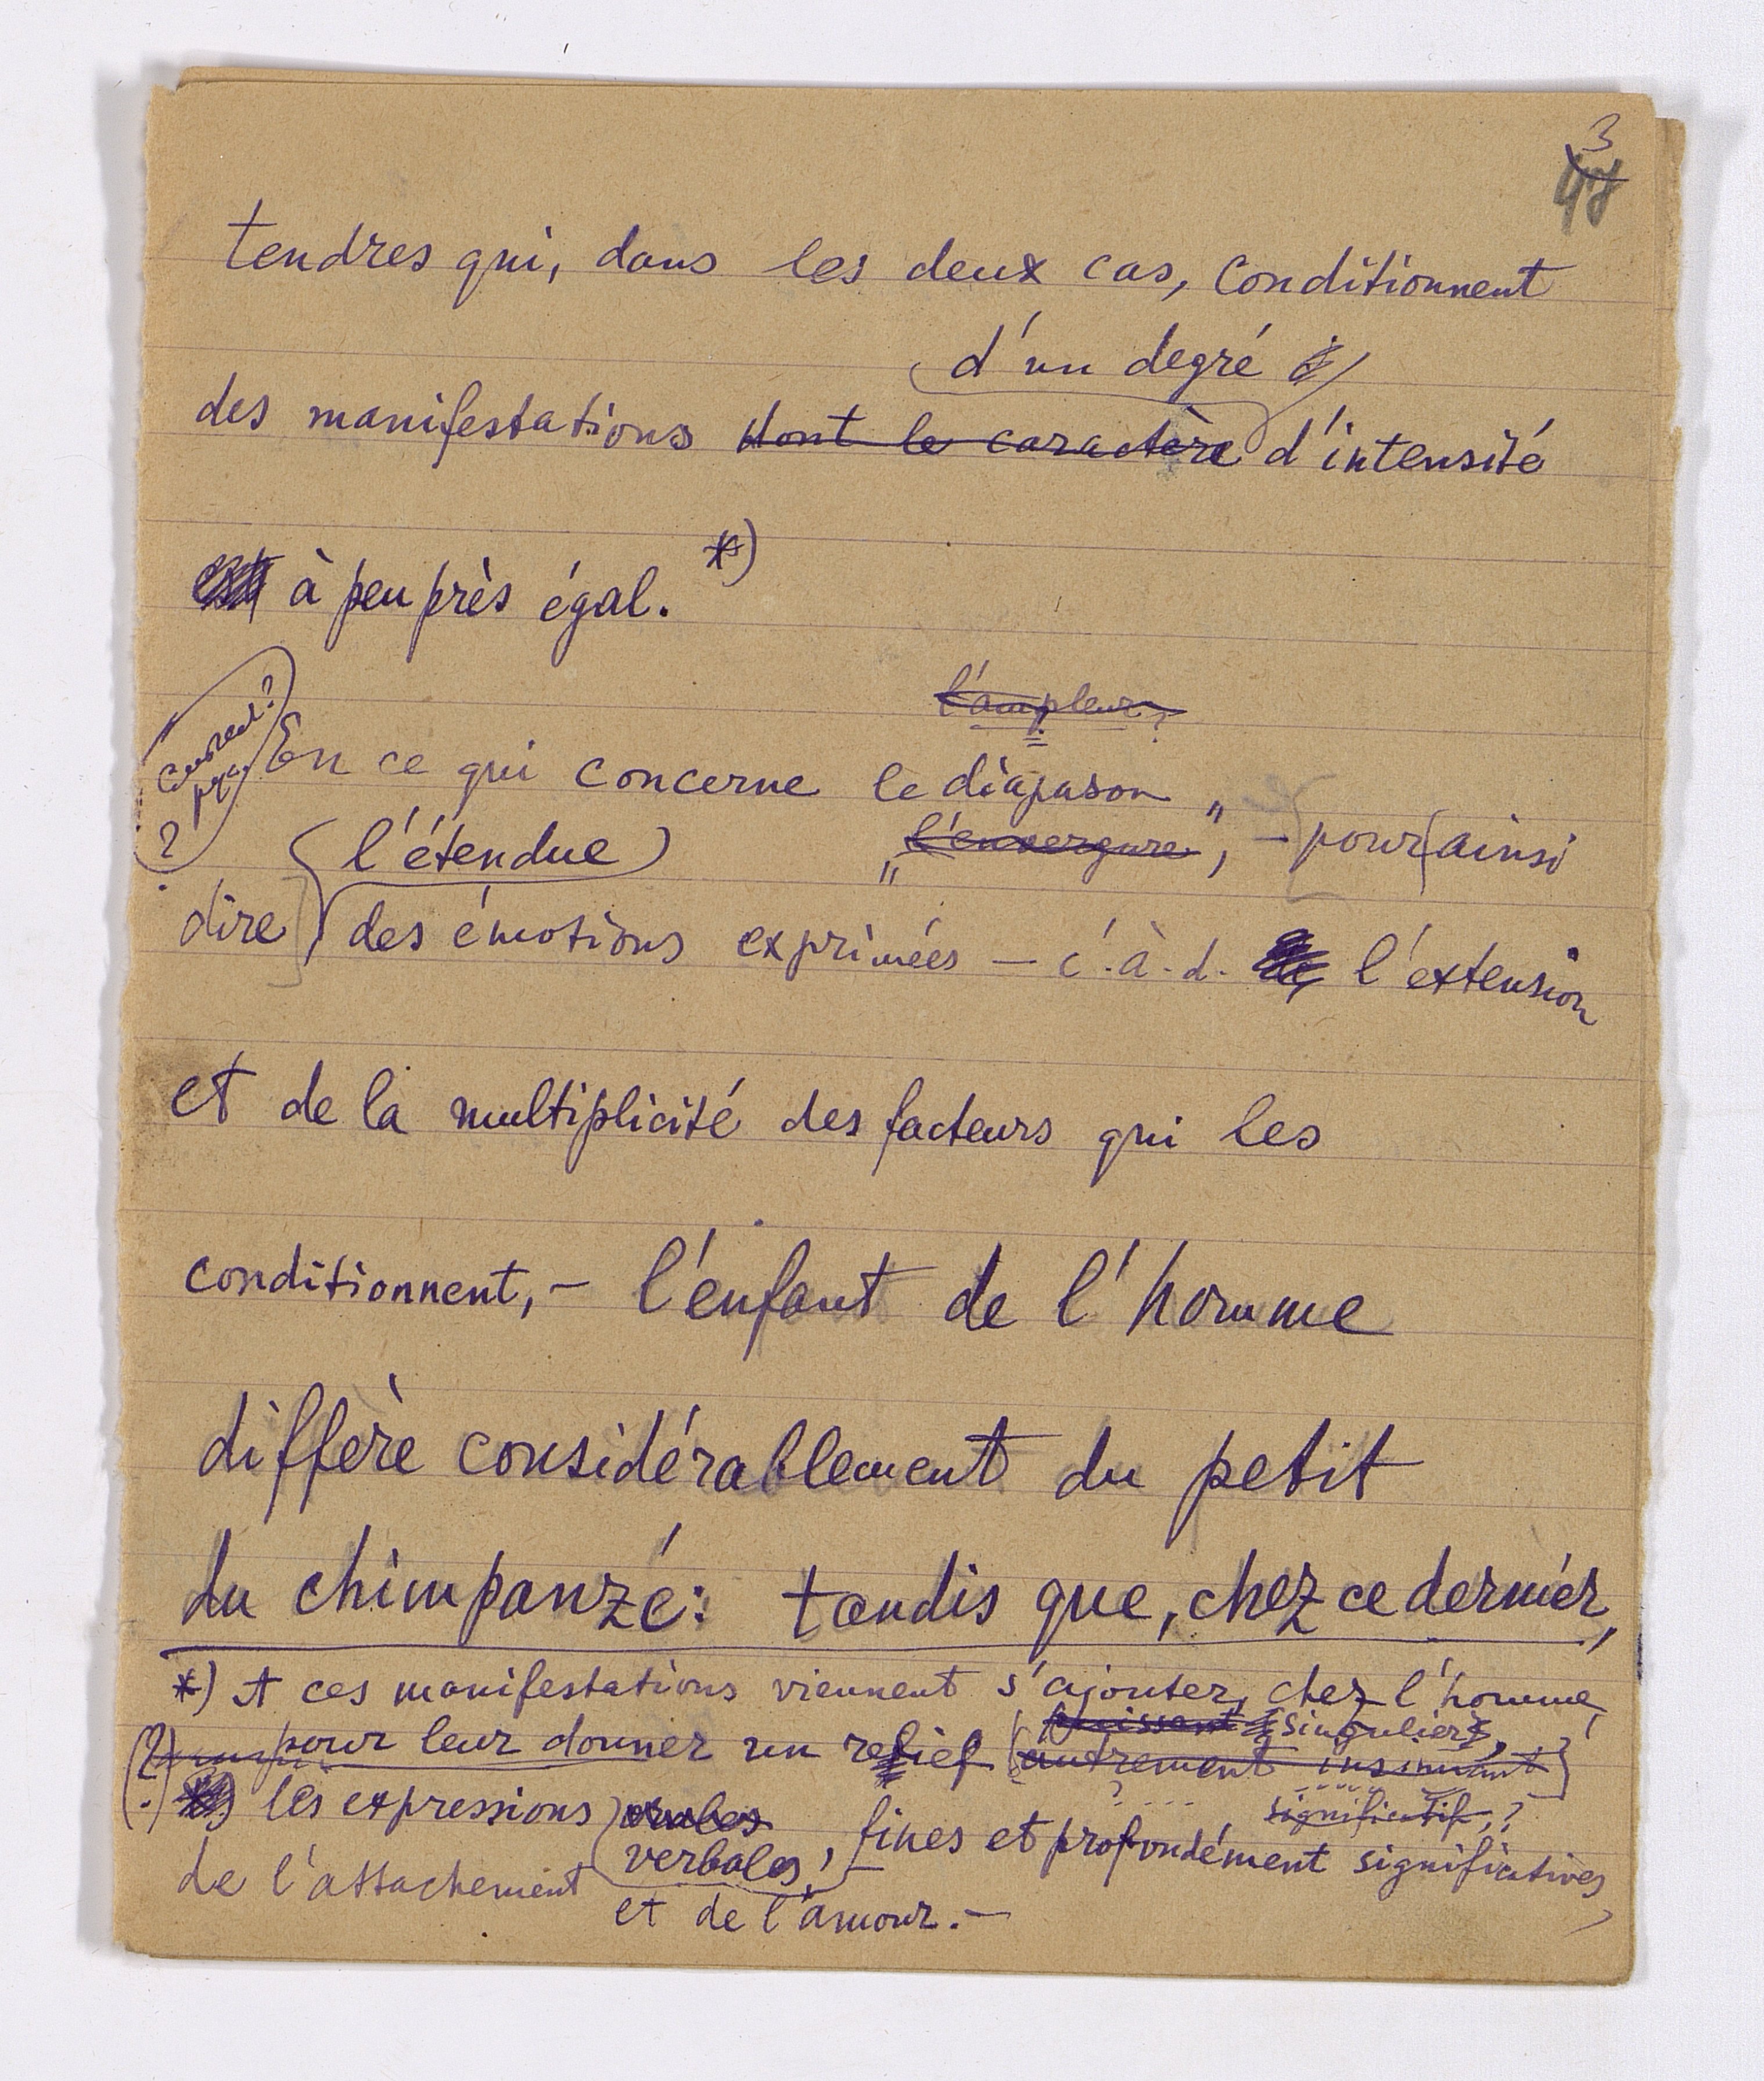 3
48
tendres qui, dans les deux cas, conditionnent
d'un degré
des manifestations dont le caractère d'intensité
est à peu près égal. *)
l'ampleur?
En ce qui concerne le diapason
(l'étendue) „l'envergure", – pour ainsi
dire des émotions exprimées – c.-à-d. l'extension
et de la multiplicité des facteurs qui les
conditionnent, – l'enfant de l'homme
diffère considérablement du petit
du chimpanzé: tandis que, chez ce dernier,
*) A ces manifestations viennent s'ajouter, chez l'homme,
puissant singulier,
(?) pour leur donner un relief (autrement insinuant)
significatif,?
les expressions orales
verbales, fines et profondément significatives
de l'attachement
et de l'amour. –